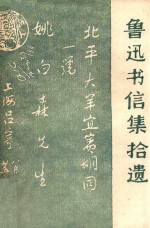 鲁迅书信集拾遗
北平大羊宜宾胡同
一号
姚 森先生
上海吕寄